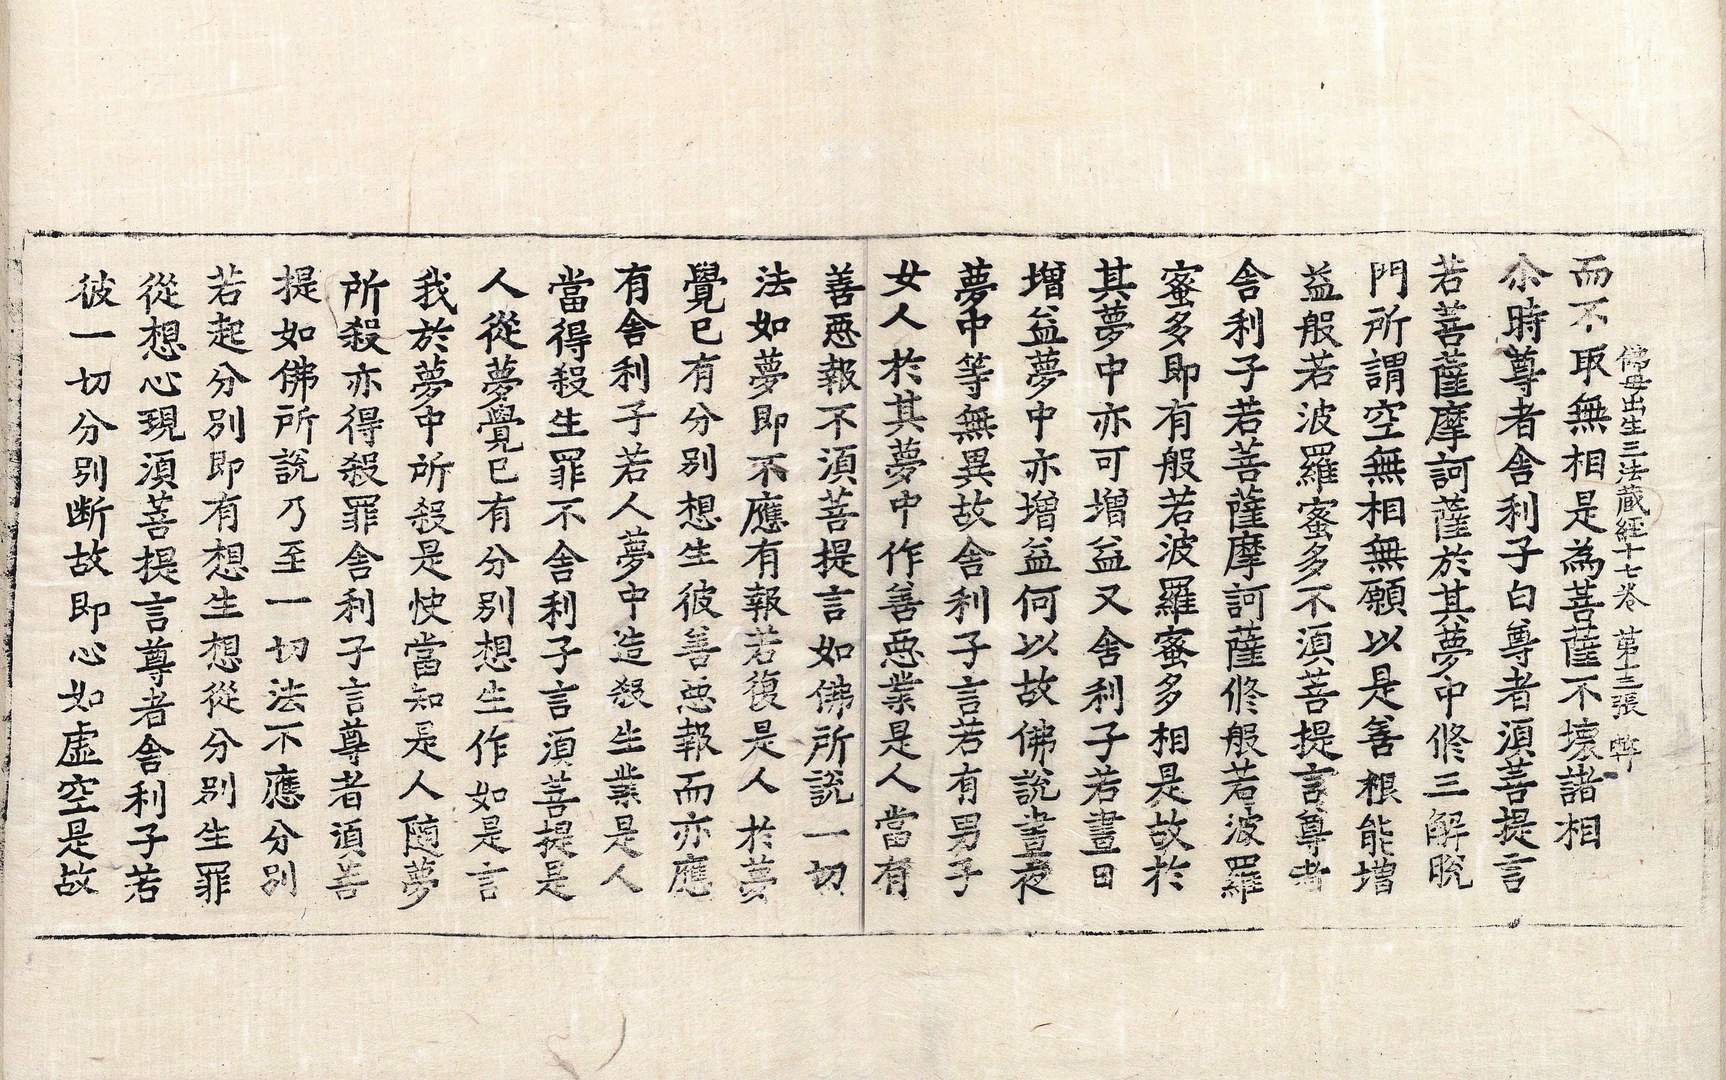 佛母出生三法蔵經十七卷 第十三張
而不取無相是為菩薩不壞諸相
尒時尊者舍利子白尊者湏菩提言
若菩薩摩訶薩於其夢中修三解脫
門所謂空無相無願以是善根能增
益般若波羅蜜多不湏菩提言尊者
舍利子若菩薩摩訶薩修般若波羅
蜜多即有般若波羅蜜多相是故於
其夢中亦可增益又舍利子若晝日
增益夢中亦增益何以故佛說晝夜
夢中等無異故舍利子言若有男子
女人於其夢中作善惡業是人當有
善惡報不湏菩提言如佛所說一切
法如夢即不應有報若復是人於夢
覺已有分別想生彼善惡報而亦應
有舍利子若人夢中造殺生業是人
當得殺生罪不舍利子言湏菩提是
人從夢覺已有分別想生作如是言
我於夢中所殺是快當知是人隨夢
所殺亦得殺罪舍利子言尊者湏菩
提如佛所說乃至一切法不應分別
若起分別即有想生想從分別生罪
從想心現湏菩提言尊者舍利子若
彼一切分別断故即心如虛空是故